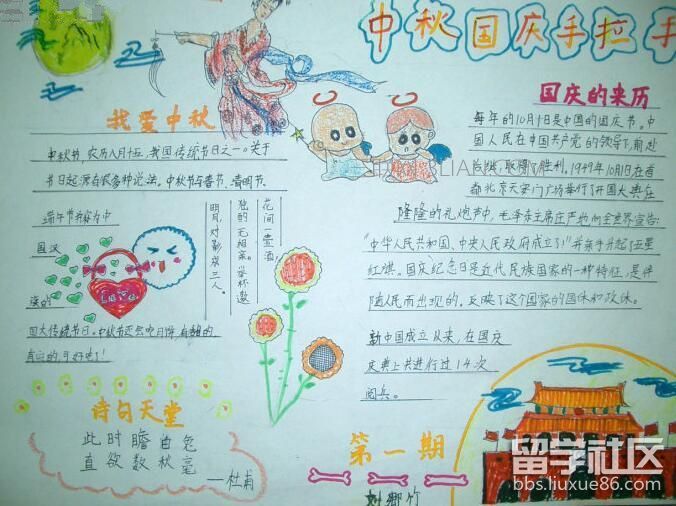 中秋国庆手拉手
我爱中秋
中秋节，农历八月十五，我国传统节日之一。关于
节日起源有很多种说法。中秋节与春节、清明节、
端午节并称为中
国汉
族的
四大传统节日。中秋节还会吃月饼，
花间一壶酒，
独酌无相亲。举杯邀
明月，对影成三人。
Love
诗句天堂
此时瞻白兔
直欲数秋毫
——杜甫
国庆的来历
每年的10月1日是中国的国庆节。中
国人民在中国共产党的领导下，前赴
后继，取得了胜利。1949年10月1日在首
都北京天安门广场举行了开国大典，在
隆隆的礼炮声中，毛泽东主席庄严地向全世界宣告：
“中华人民共和国，中央人民政府成立了！”并亲手升起了五星
红旗。国庆纪念日是近代民族国家的一种特征，是伴
随人民而出现的。反映了这个国家的国体和政体。
新中国成立以来，在国庆
庆典上共进行过14次
阅兵。
第一期
留学社区
bbs.liuxue86.com